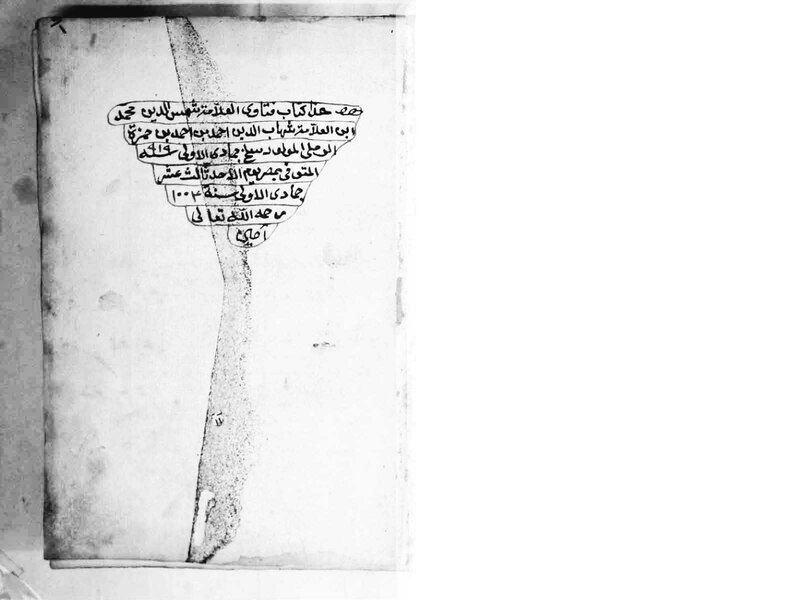 هذا كتاب فتاوى العلامة شمس الدين محمد
ابن العلامة شهاب الدين احمد بن احمد بن حمزة
الرملي المولود سلخ جمادى الاولى سنة ٩١٩
المتوفى بمصر يوم الاحد ثالث عشر
جمادى الاولى سنة ١٠٠٤
رحمه الله تعالى
آمين